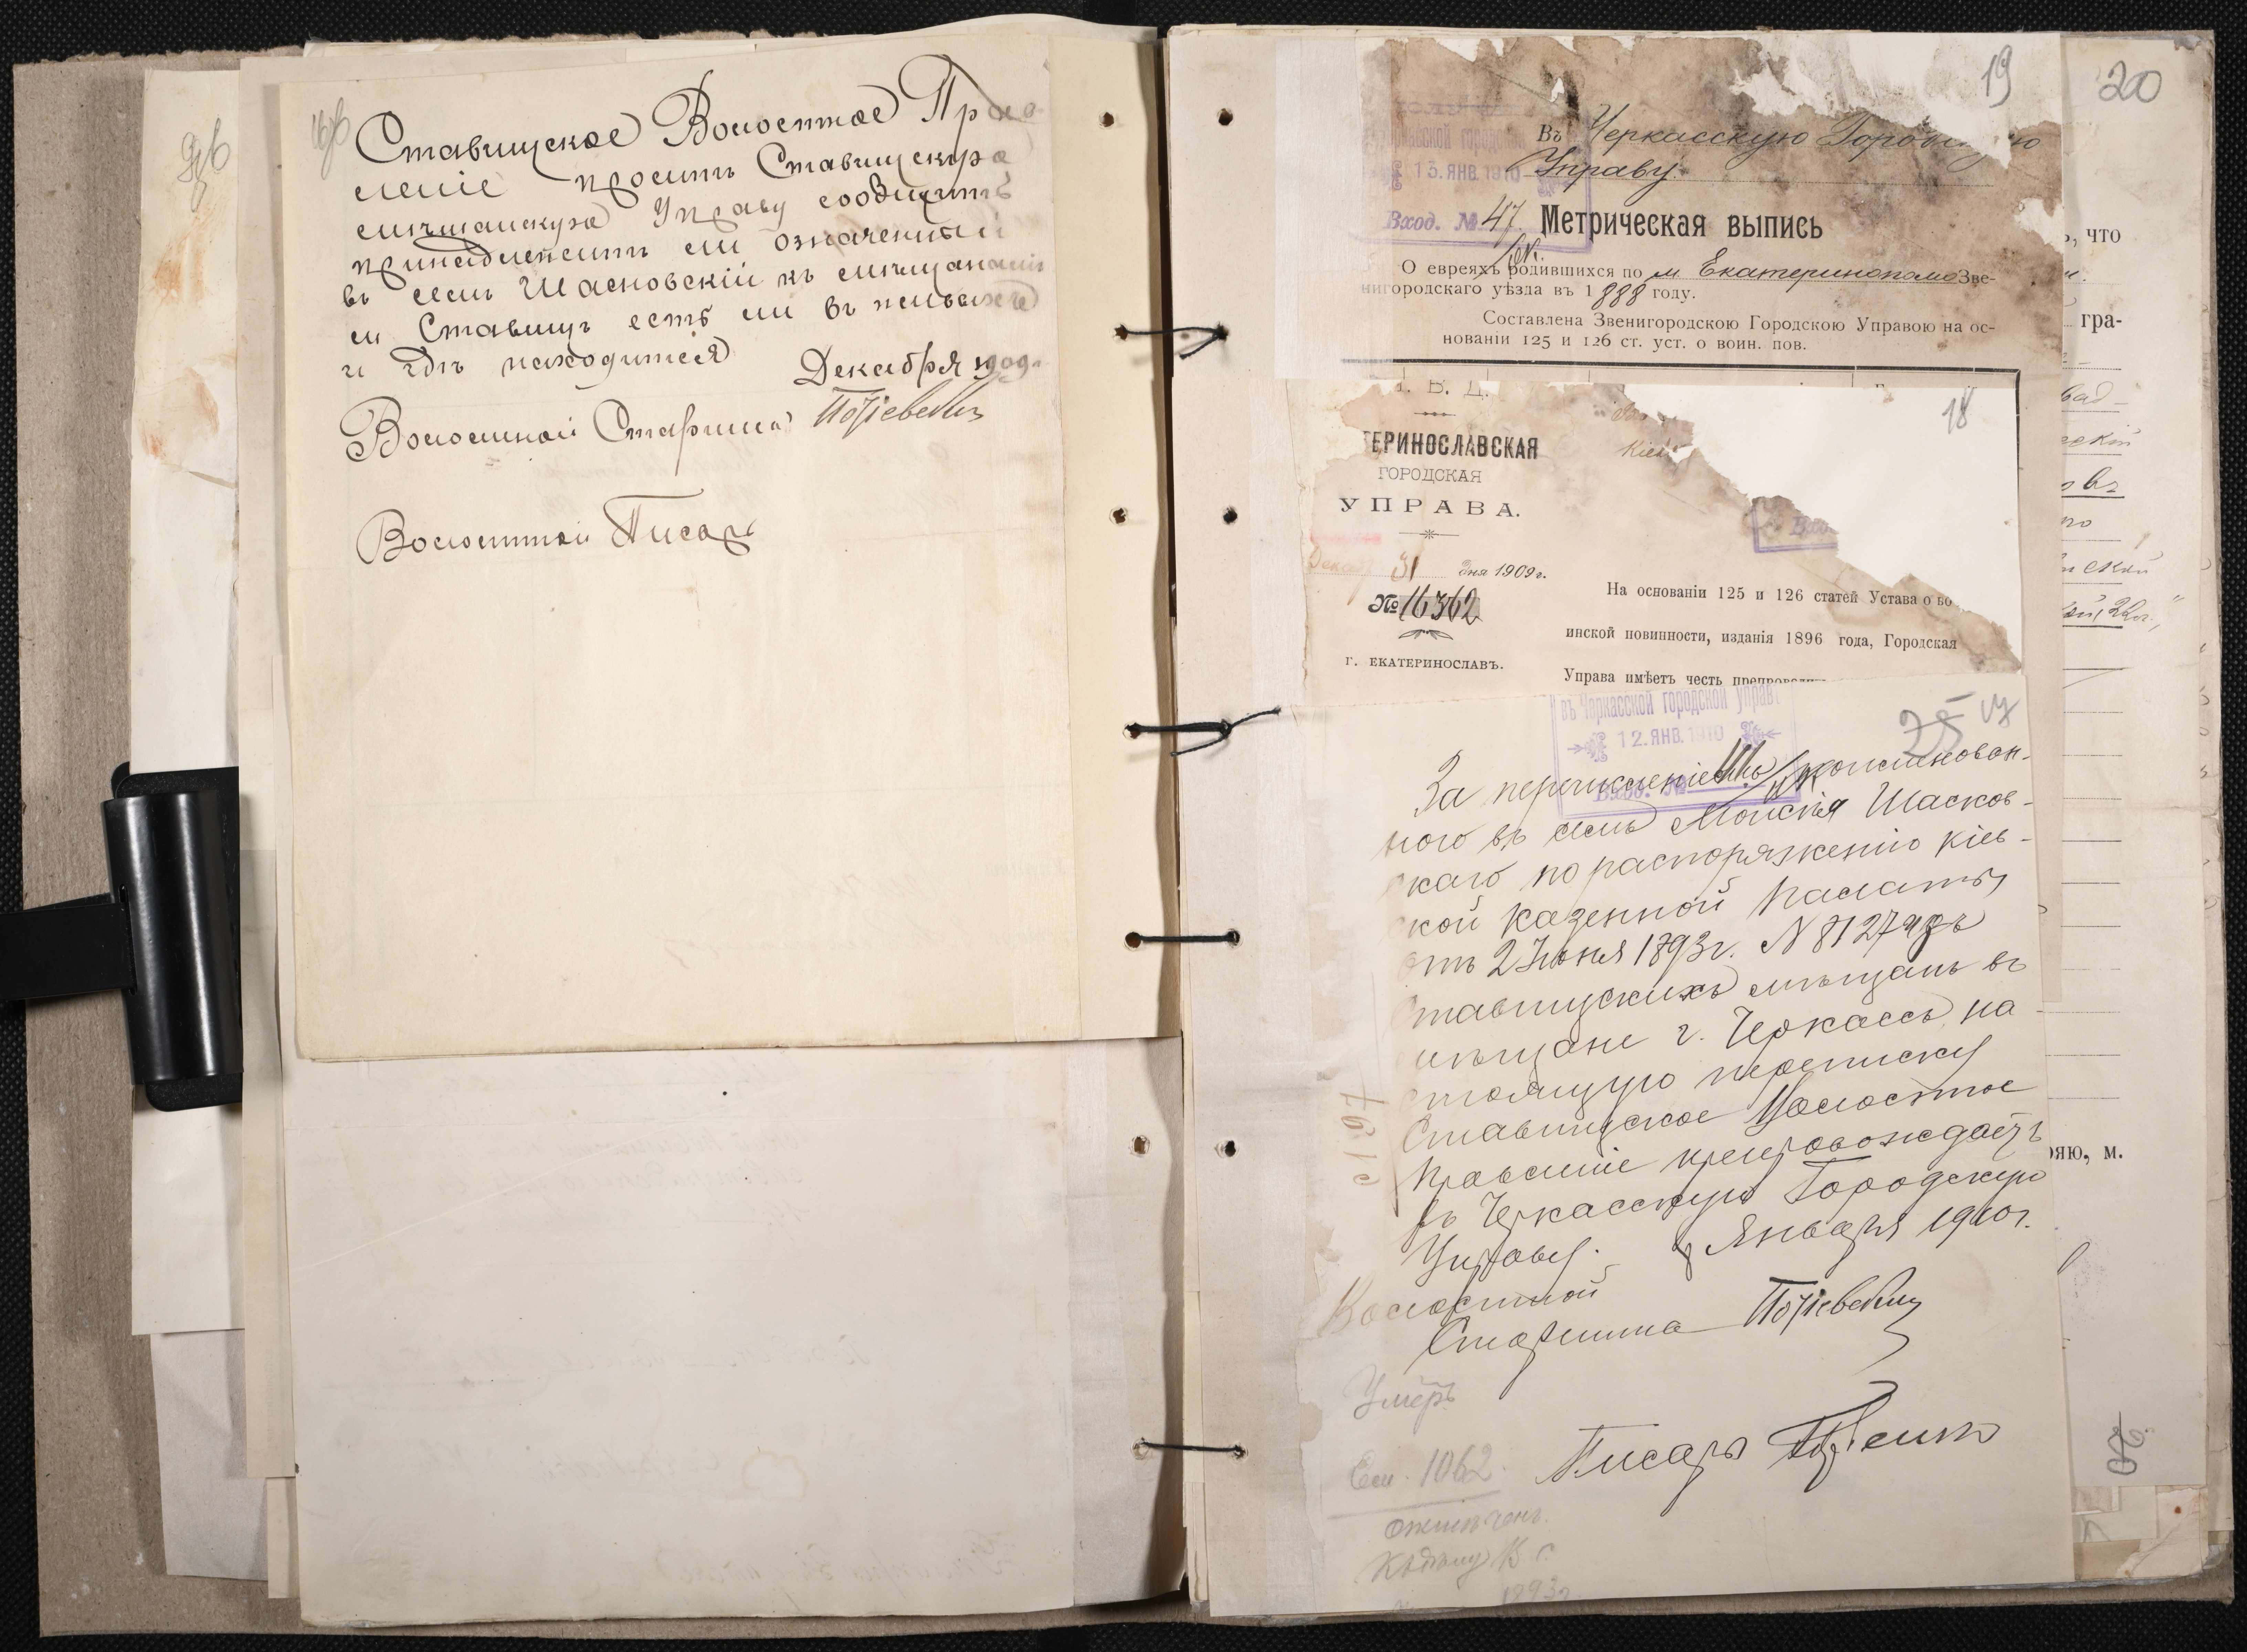 16об
Ставищское Волостное Прав
леніе проситъ Ставищскую
мѣщанскую Управу сообщить
принадлежитъ ли означенный
въ семъ Шасковскій къ мѣщанамъ
м. Ставищъ есть ли въ живыхъ
и гдѣ находится
Декабря 1909 г.
Волостной Старшина
Волостной Писарь
19
Въ Черкасскую Городскую
Управу.
13. ЯНВ. 1910
Вход. № 47
Метрическая выпись
О евреяхъ родившихся по м Екатеринополю Зве-
нигородскаго уѣзда въ 1888 году.
Составлена Звенигородскою Городскою Управою на ос-
нованіи 125 и 126 ст. уст. о воин. пов.
18
. В. Д.
ТЕРИНОСЛАВСКАЯ
ГОРОДСКАЯ
УПРАВА.
Декабря 31 дня 1909 г.
№ 16362
г. ЕКАТЕРИНОСЛАВЪ.
На основаніи 125 и 126 статей Устава о во
инской повинности, изданія 1896 года, Городская
Управа имѣетъ честь препроводить
въ Черкасской городской управѣ
12. ЯНВ. 1910
Вход. №
25 17
За перечисленіемъ поименован-
ного въ семъ Мойсѣя Шасков-
скаго по распоряженію Кіев-
ской Казенной Палаты
отъ 2 Июня 1893 г. N 8127 изъ
Ставищскихъ мѣщанъ въ
мѣщане г. Черкассъ, на
стоящую переписку
Ставищское Волостное
Правленіе препровождаетъ
въ Черкасскую Городскую
Управу. Января 1910 г.
Волостной
Старшина
Писарь
Умеръ
Сем. 1062.
1893
20
, что
гра-
ряю, м.